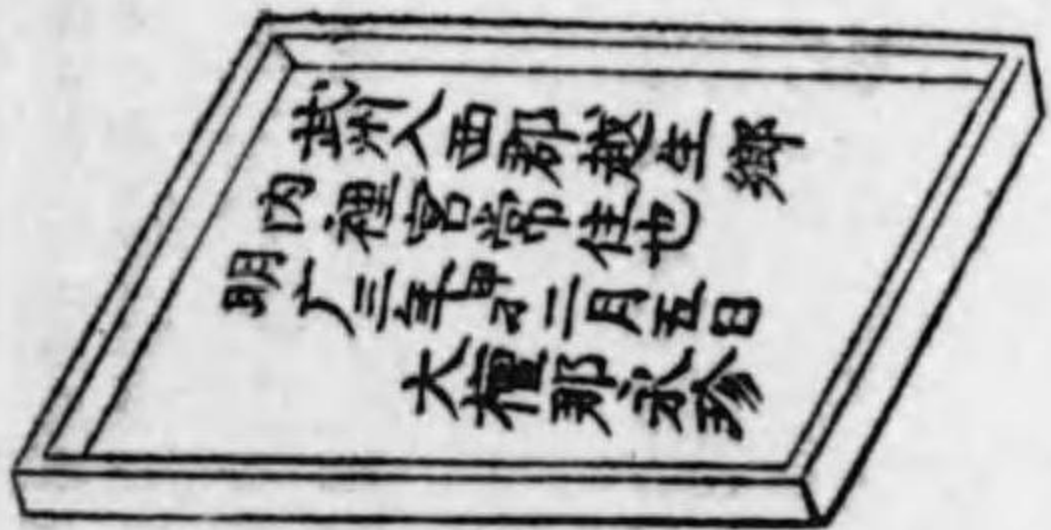 武州入西郡越生郷
内裡宮常住也
明广三年甲刁二月五日
大檀那永珍